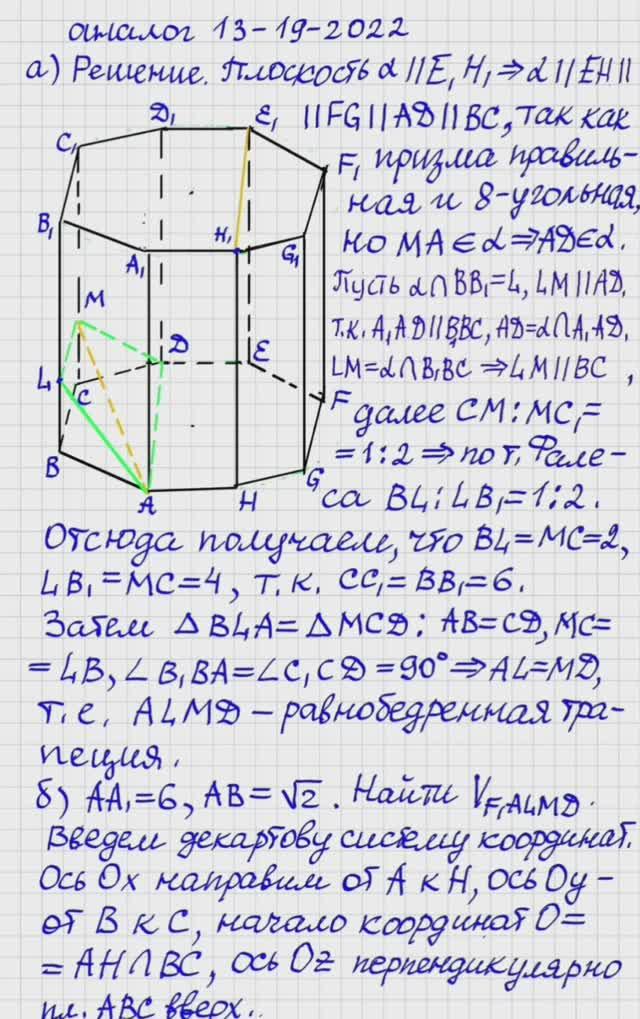 аналог 13-19-2022
а) Решение. Плоскость α||E₁H₁⇒α||EH||
||FG||AD||BC, так как
призма правиль-
ная и 8-угольная,
но MA∈α⇒AD∈α.
Пусть α∩BB₁=L, LM||AD,
т.к. A₁AD||B₁BC, AD=α∩A₁AD,
LM=α∩B₁BC ⇒LM||BC,
далее CM:MC₁=
=1:2⇒по т. Фале-
са BL:LB₁=1:2.
D₁
E₁
C₁
F₁
B₁
A₁
H₁
G₁
M
D
E
L
C
F
B
A
H
G
Отсюда получаем, что BL=MC=2,
LB₁=MC=4, т.к. CC₁=BB₁=6.
Затем ΔBLA=ΔMCD: AB=CD, MC=
=LB, ∠B₁BA=∠C₁CD=90°⇒AL=MD,
т.е. ALMD – равнобедренная тра-
пеция.
б) AA₁=6, AB=√2. Найти V_F₁ALMD.
Введем декартову систему координат.
Ось Ox направим от A к H, ось Oy –
от B к C, начало координат O=
=AH∩BC, ось Oz перпендикулярно
пл. ABC вверх.